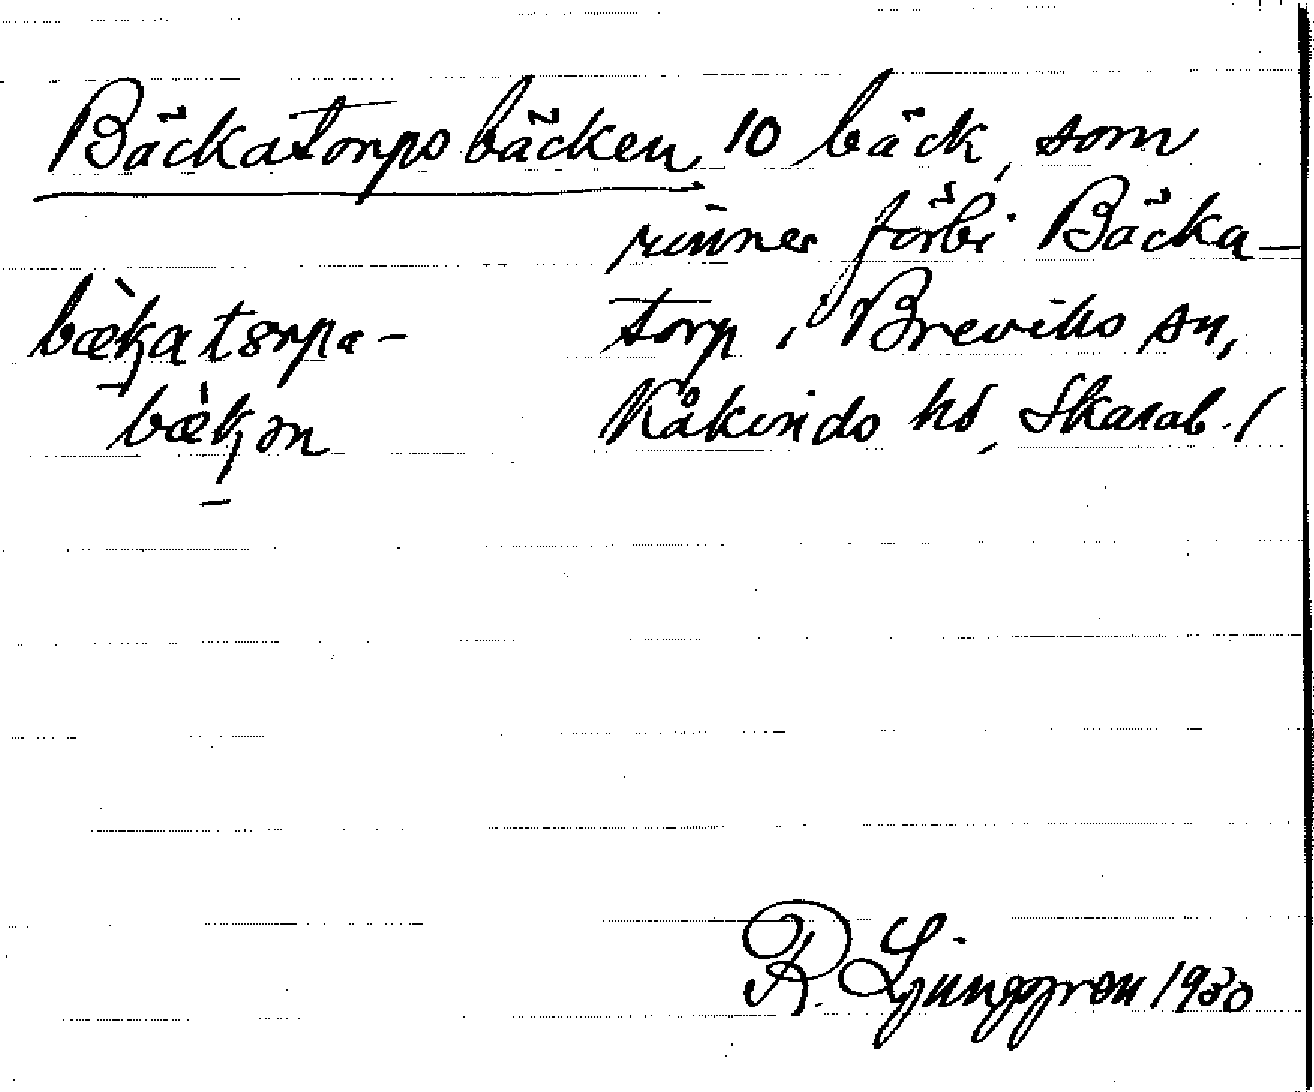 Bäckatorpsbäcken 10 bäck, som
rinner förbi Bäcka-
torp i Breviks sn,
Kåkinds hd, Skarab. l
bæ̀katorpa-
bæ̀kən
R. Ljunggren 1930